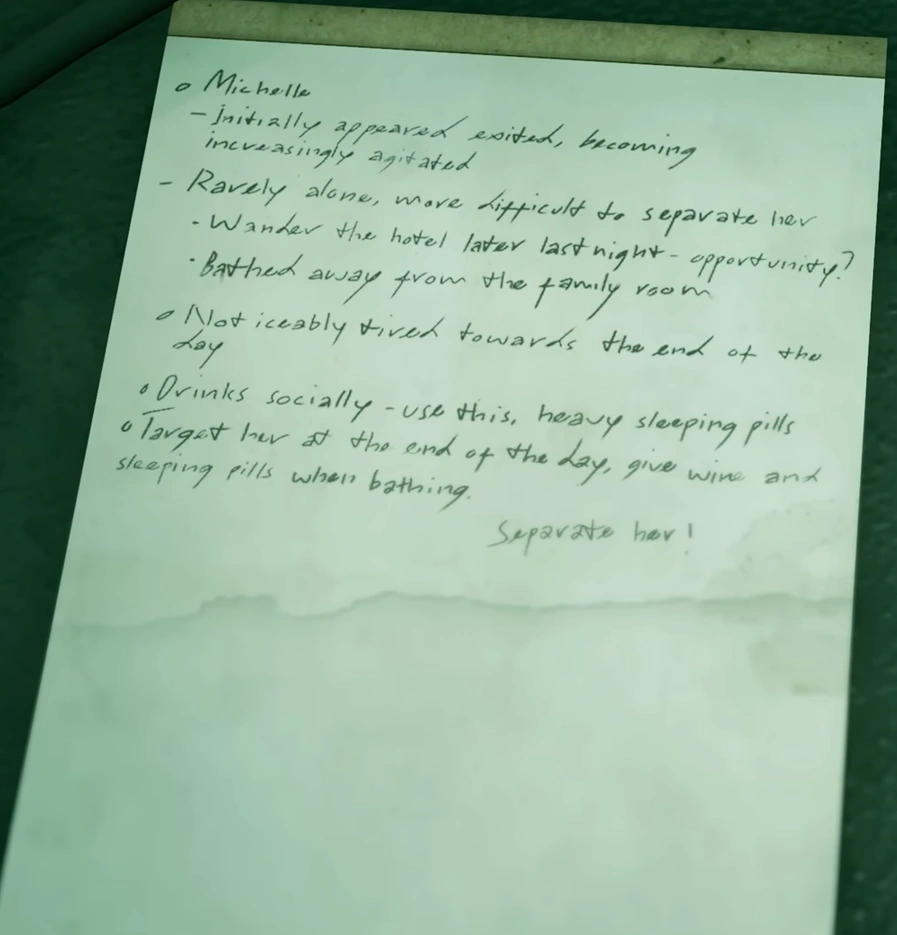 o Michelle
- Initially appeared exited, becoming
increasingly agitated
- Rarely alone, more difficult to separate her
- Wander the hotel later last night - opportunity?
· Bathed away from the family room
o Noticeably tired towards the end of the
day
o Drinks socially - use this, heavy sleeping pills
o Target her at the end of the day, give wine and
sleeping pills when bathing.
Separate her!